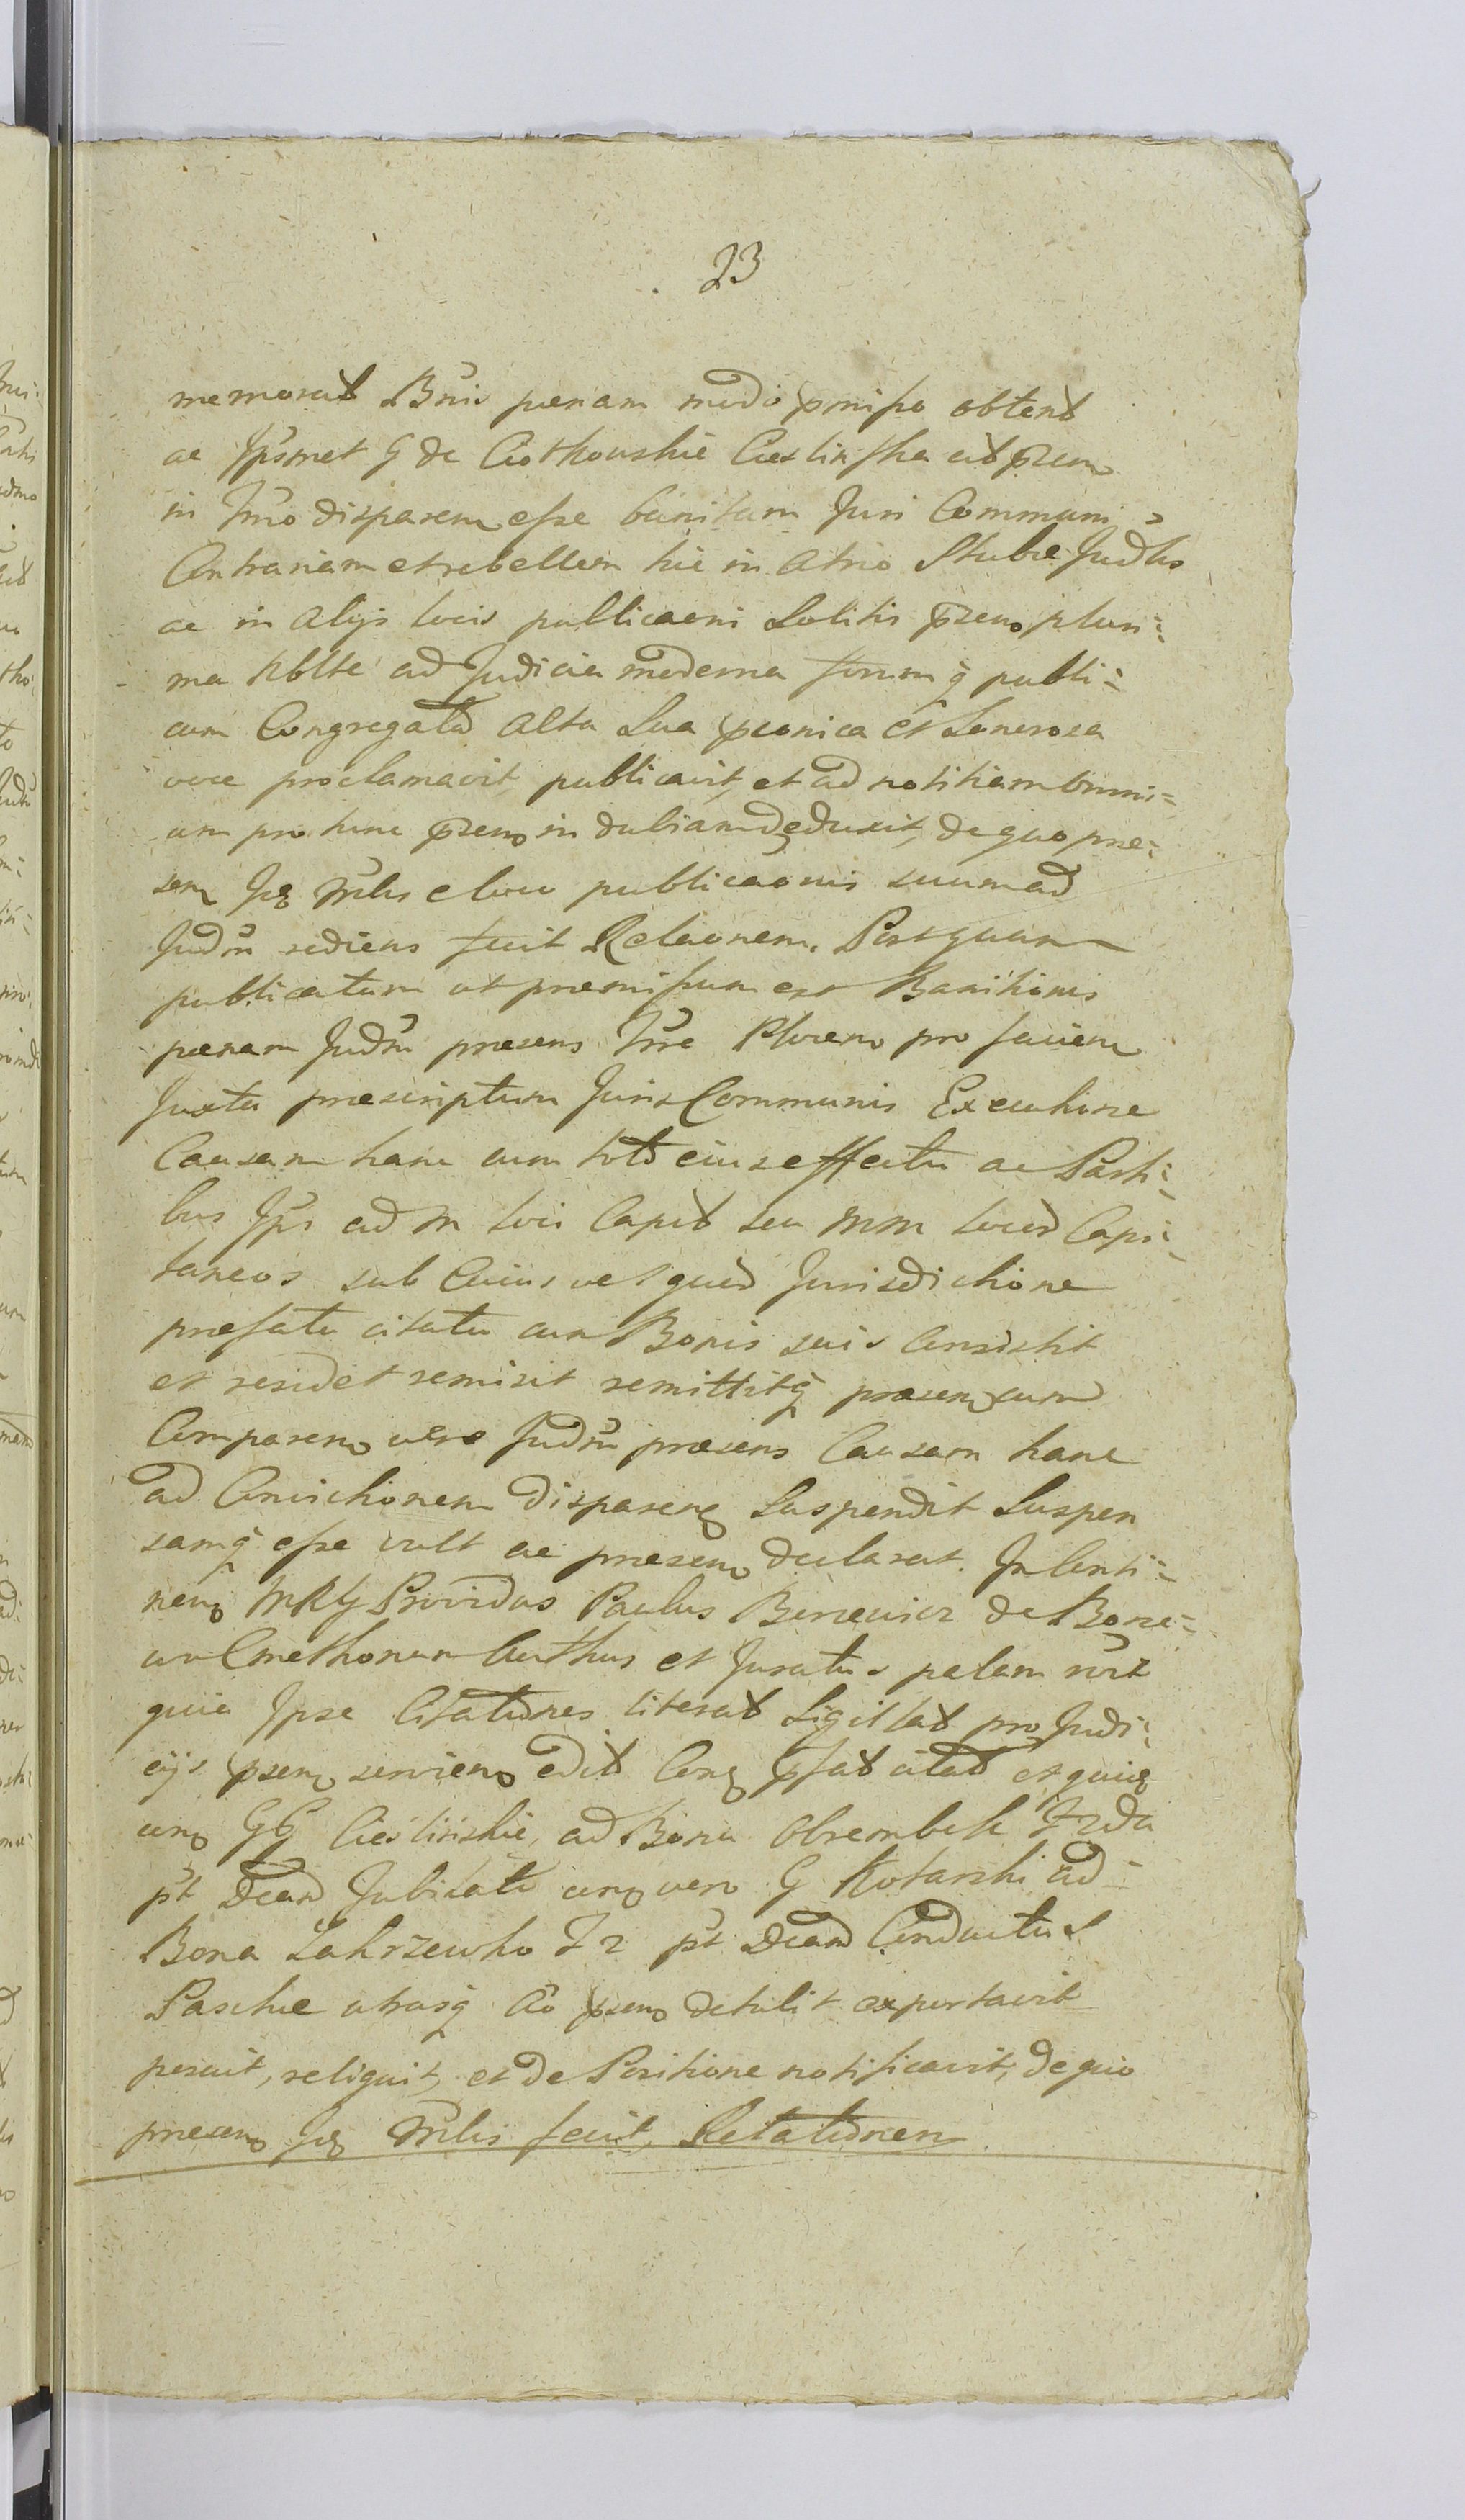 23
memorat Bnis pænam modo pmiſso obtent
ac Ipsmet G de Ciotkowskie Cieslinska cit psem
in Tmo disparem eſse banitam Juri Communi
Contrariam et rebellem hic in Atrio Stubæ Judlis
ac in alijs locis publicaoni Solitis psen pluri:
ma Nblte ad Judicia moderna forumq publi:
cum Congregata Alta Sua pconica et Sonorosa
voce proclamavit publicavit, et ad notitiam omni=
um pro tunc psen in dubiam deduxit, de quo præ:
sen Jz Mlis e loco publicaonis suum ad
Judm rediens fecit Relaonem. Postquam
publicatam ut præmiſsum est Banitionis
pænam Judm præsens Trre pro faciem
Juxta præscriptum Juris Communis Executione
Causam hanc cum toto eius effectu ac Parti:
bus Ips ad M loci Capit seu MM locor Capi:
taneos sub Cuius vel quor Jurisdictione
præfata citata cum Bonis suis Consistit
et residet remisit remittitq præsen cum
Comparen vero Judm præsens Causam hanc
ad Convictionem disparen Suspendit Suspen
samq eſse vult ac præsen declarat. In Conti:
nen MRG Providus Paulus de
Cmethonum Authus et Juratus palam
quia Ipse Citationes literat Sigillat pro Judi:
cijs psen servien edit Con pfat citat et quid
un GG Cieslinskie, ad Bona Obrembek
pt Dcam Jubilate un vero G Kotarski ad
Bona Zakrzewko pt Dcam Conductus
Paschæ utrasq Ao psen detulit exportavit
posuit, reliquit, et de Positione notificavit, de quo
præsen Jz Mlis fecit Relationem